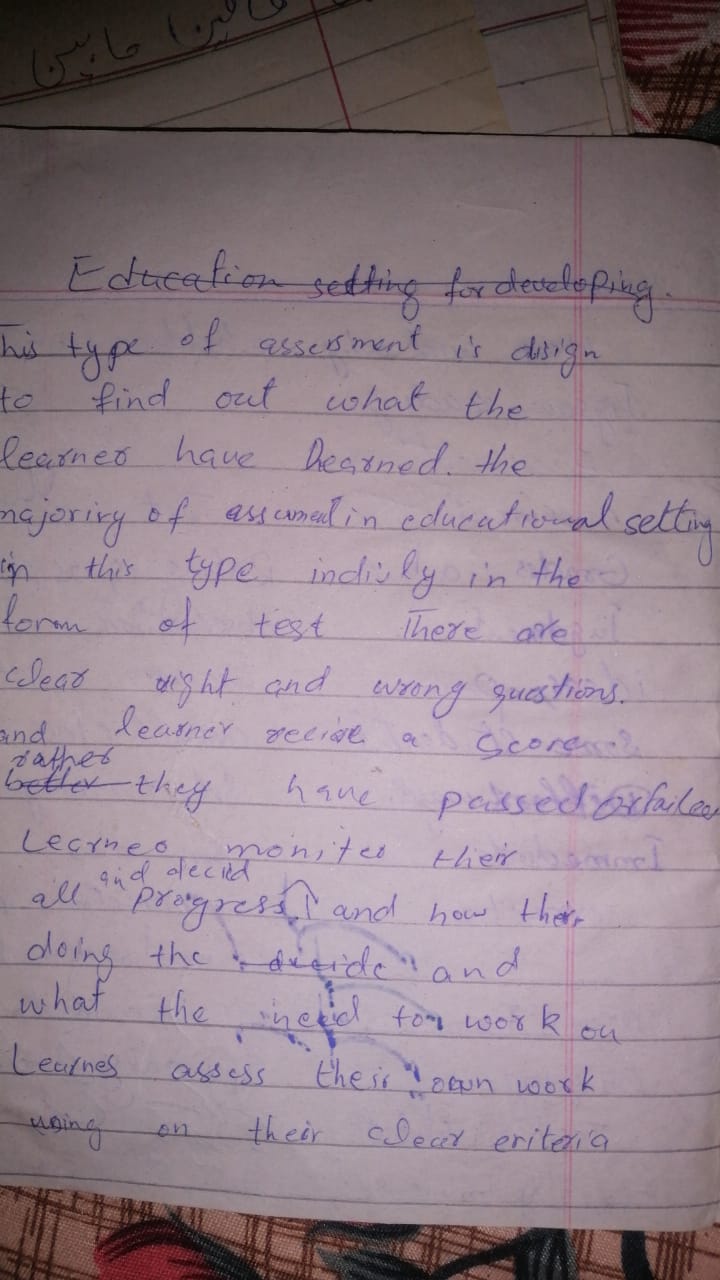 جا پین
Education setting for developing.
This type of assersment is disign
to find out what the
learnes have Dearned. the
majoriry of assumed in educational setting
in this type indivly in the
form of test There are
clear right and wrong questions.
and learner recive a Score
rather
better they have passed or failed
Learnes moniter their
and decid
all progress and how their
doing the decide and
what the need to work on
Learnes assess their own work
using on their clear eriteria